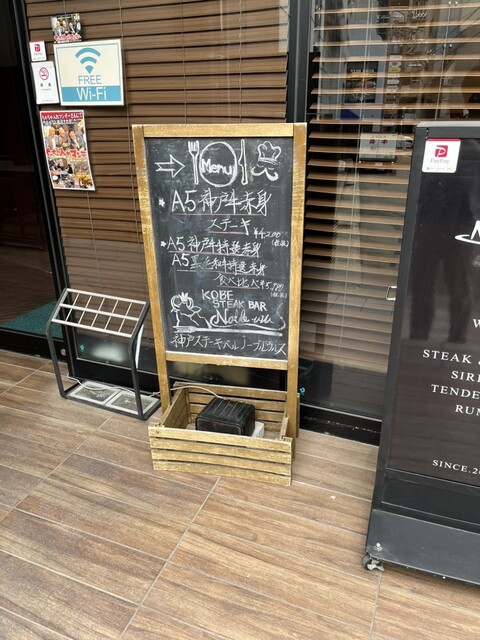 FREE
Wi-Fi
Menu
A5神戸牛赤身
ステーキ
¥4,200
(税抜)
A5神戸牛特選赤身
A5黒毛和牛特選赤身
食べ比べ ¥5,900
(税抜)
KOBE
STEAK BAR
神戸ステーキバル ノーブルウルス
PayPay
STEAK
SIR
TENDE
RUM
SINCE.20